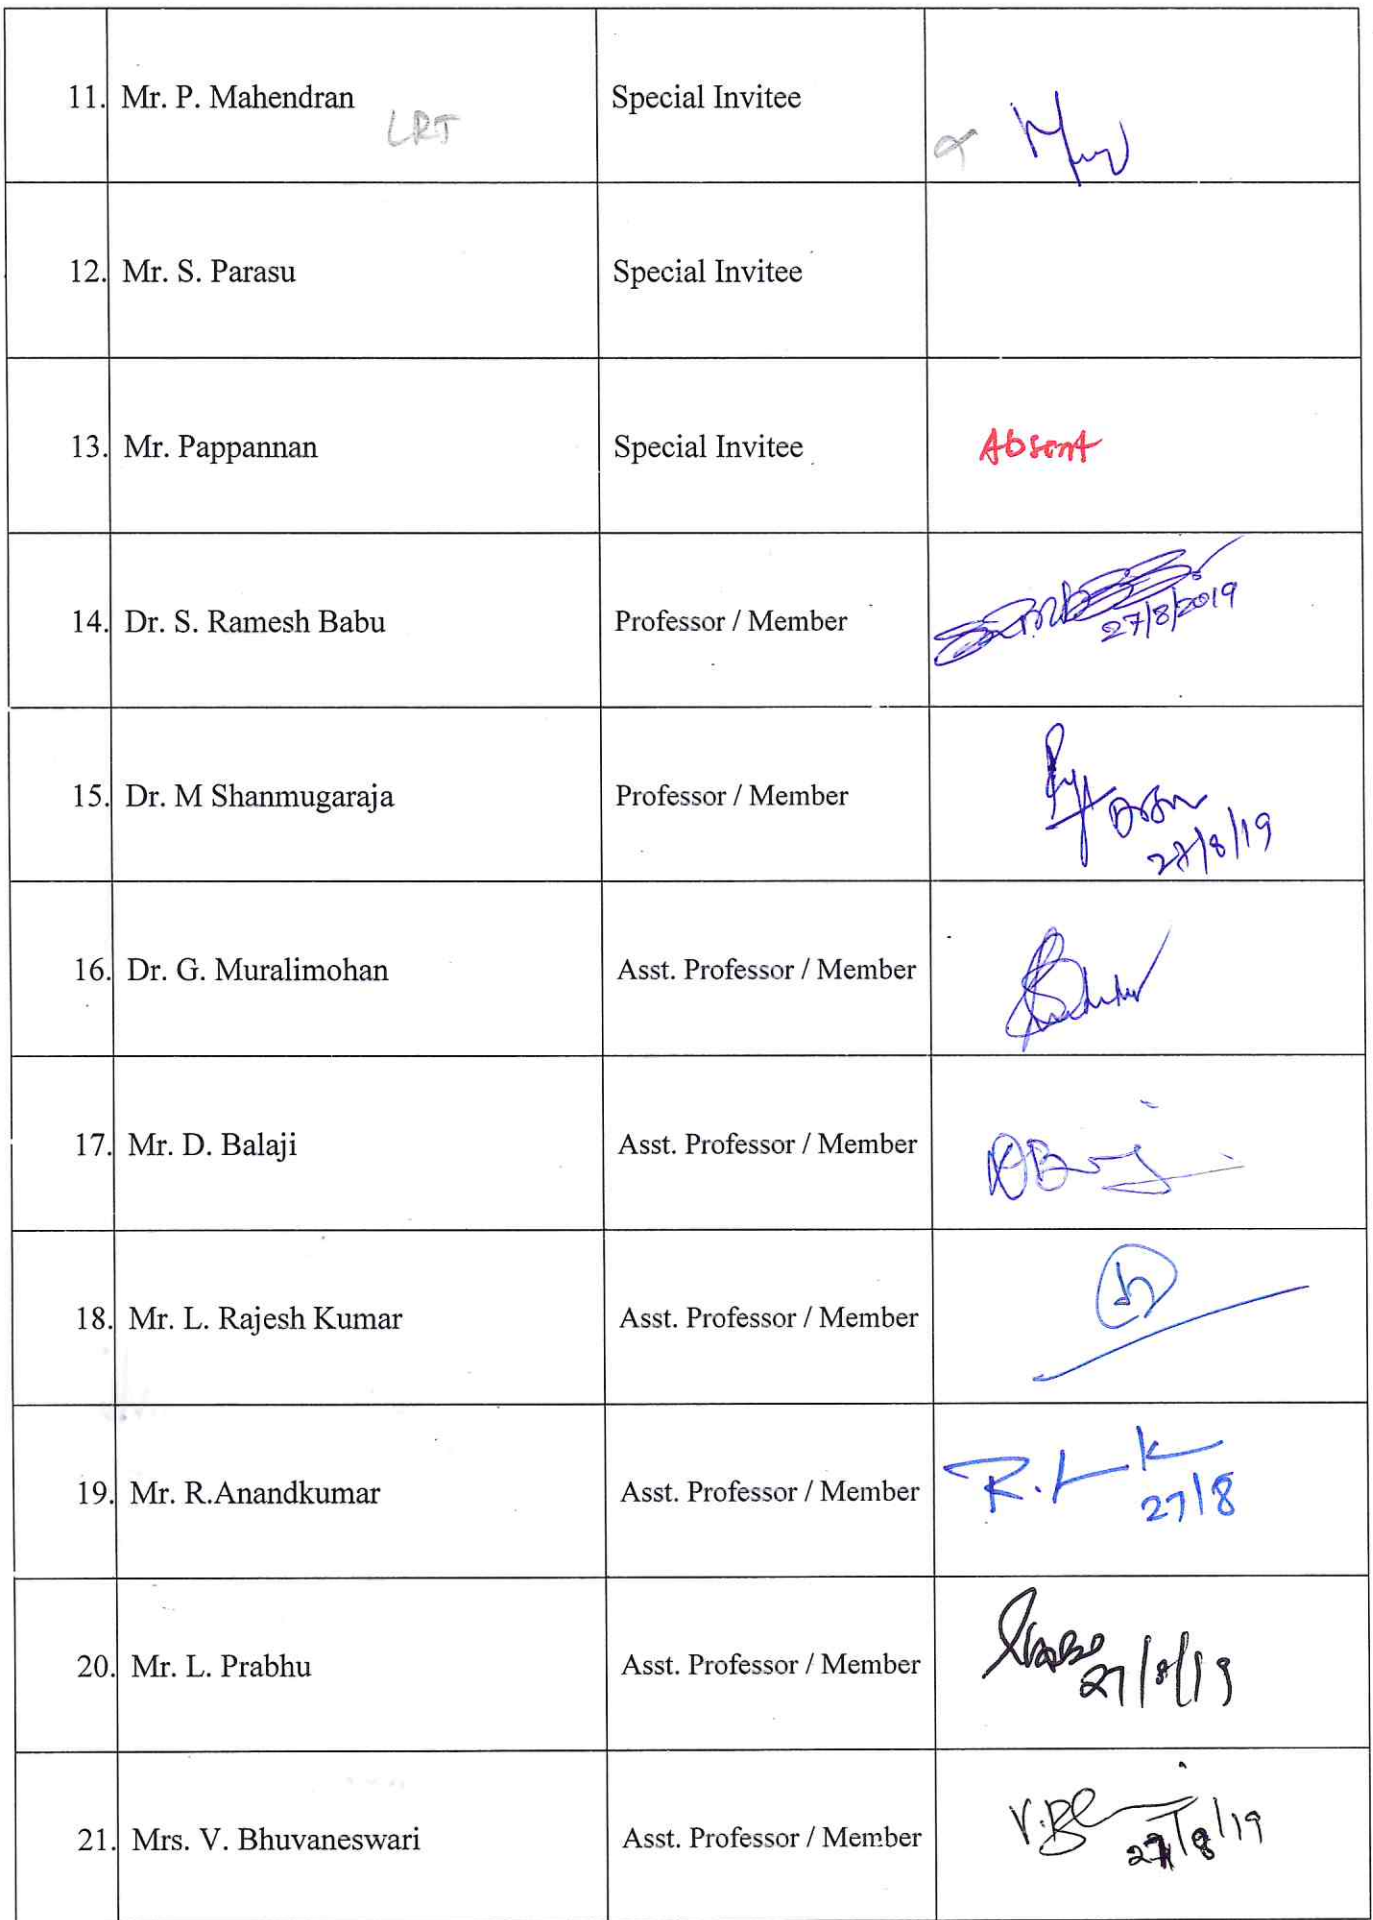 11. Mr. P. Mahendran Special Invitee
LRT
12. Mr. S. Parasu Special Invitee
13. Mr. Pappannan Special Invitee Absent
14. Dr. S. Ramesh Babu Professor / Member
27/8/2019
15. Dr. M Shanmugaraja Professor / Member
27/8/19
16. Dr. G. Muralimohan Asst. Professor / Member
17. Mr. D. Balaji Asst. Professor / Member
18. Mr. L. Rajesh Kumar Asst. Professor / Member
19. Mr. R.Anandkumar Asst. Professor / Member
27/8
20. Mr. L. Prabhu Asst. Professor / Member
27/8/19
21. Mrs. V. Bhuvaneswari Asst. Professor / Member
27/8/19